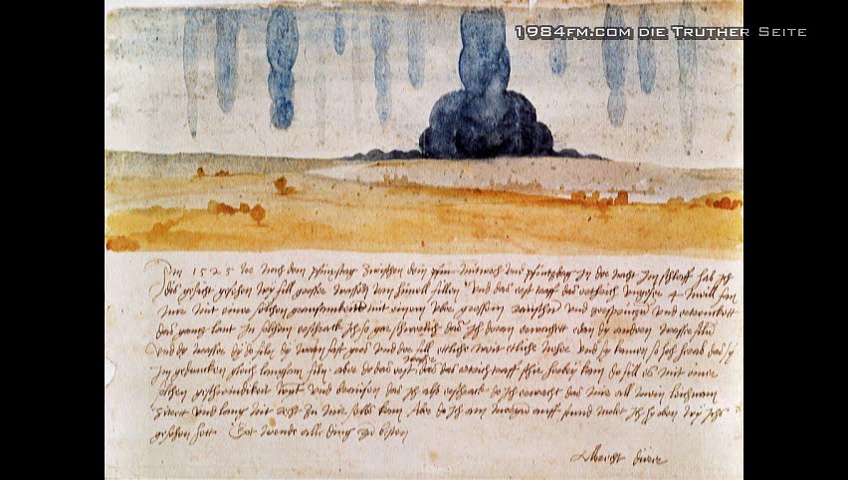 1984FM.com die Truther Seite
Im 1525 Jor nach dem pfinxstag zwischen dem Mitwoch und pfintzdag in der nacht im schlaff hab ich
dis gesicht gesehen wy fill grosser wassern vom himell fillen Und das erst traff das erthrich ungefer 4 meill fan
mir mit einer solchen grausamkeitt mit einem uber grossem raüschn und zersprützn und ertrenckett
das gannz lant In solchem erschrack ich so gar schwerlich das ich doran erwachett dy andern wasser filn
Und dy wasser dy do filn dy warn fast gros und der fill ettliche weit etliche neher und sy kamen so hoch herab das sy
im gedancken gleich langsam filn. aber do das erst wasser das das ertrich traff schir herbey kam do fill es mit einer
solchen geschwindikeit wynt und braüsen das ich also erschrack do ich erwacht das mir all mein leichnam
zitrett und lang nit recht zu mir selbs kam Aber do ich am morgn auff stund molet ich hy oben wy ichs
gesehen hett. Got wende alle ding zu besten
Albrecht dürer